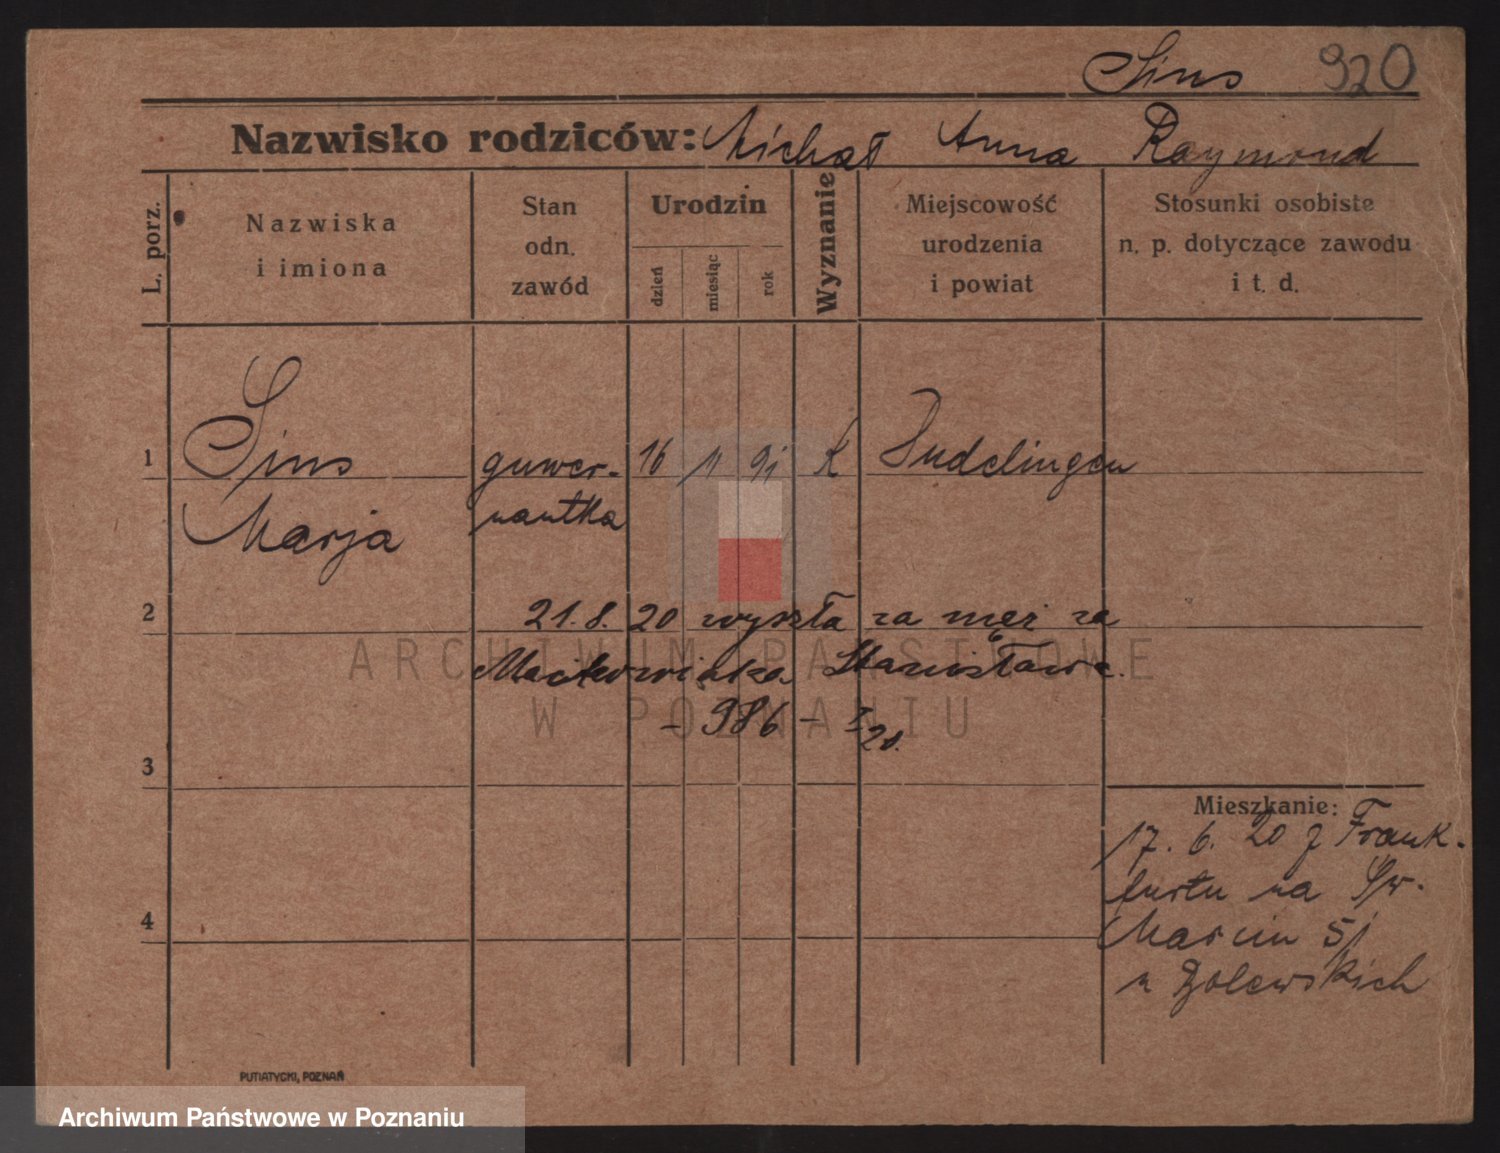 Sins 920
Nazwisko rodziców: Michał Anna Raymond
L. porz.
Nazwiska
i imiona
Stan
odn.
zawód
Urodzin
dzień
miesiąc
rok
Wyznanie
Miejscowość
urodzenia
i powiat
Stosunki osobiste
n. p. dotyczące zawodu
i t. d.
1
Sins
Marja
guwer-
nantka
16 11 91 K Dudelingen
2
21.8.20 wyszła za męż za
Stanisława.
- 986 - I
20.
3
Mieszkanie:
17. 6. 20 z Frank-
furtu na Św.
Marcin 51
u
4
PUTIATYCKI, POZNAŃ
ARCHIWUM PAŃSTWOWE
W POZNANIU
Archiwum Państwowe w Poznaniu